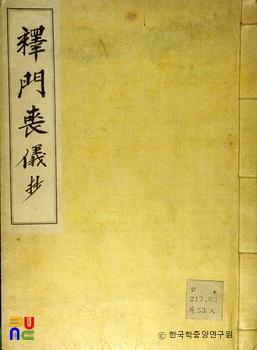 釋門喪儀抄
217.63
53
© 한국학중앙연구원